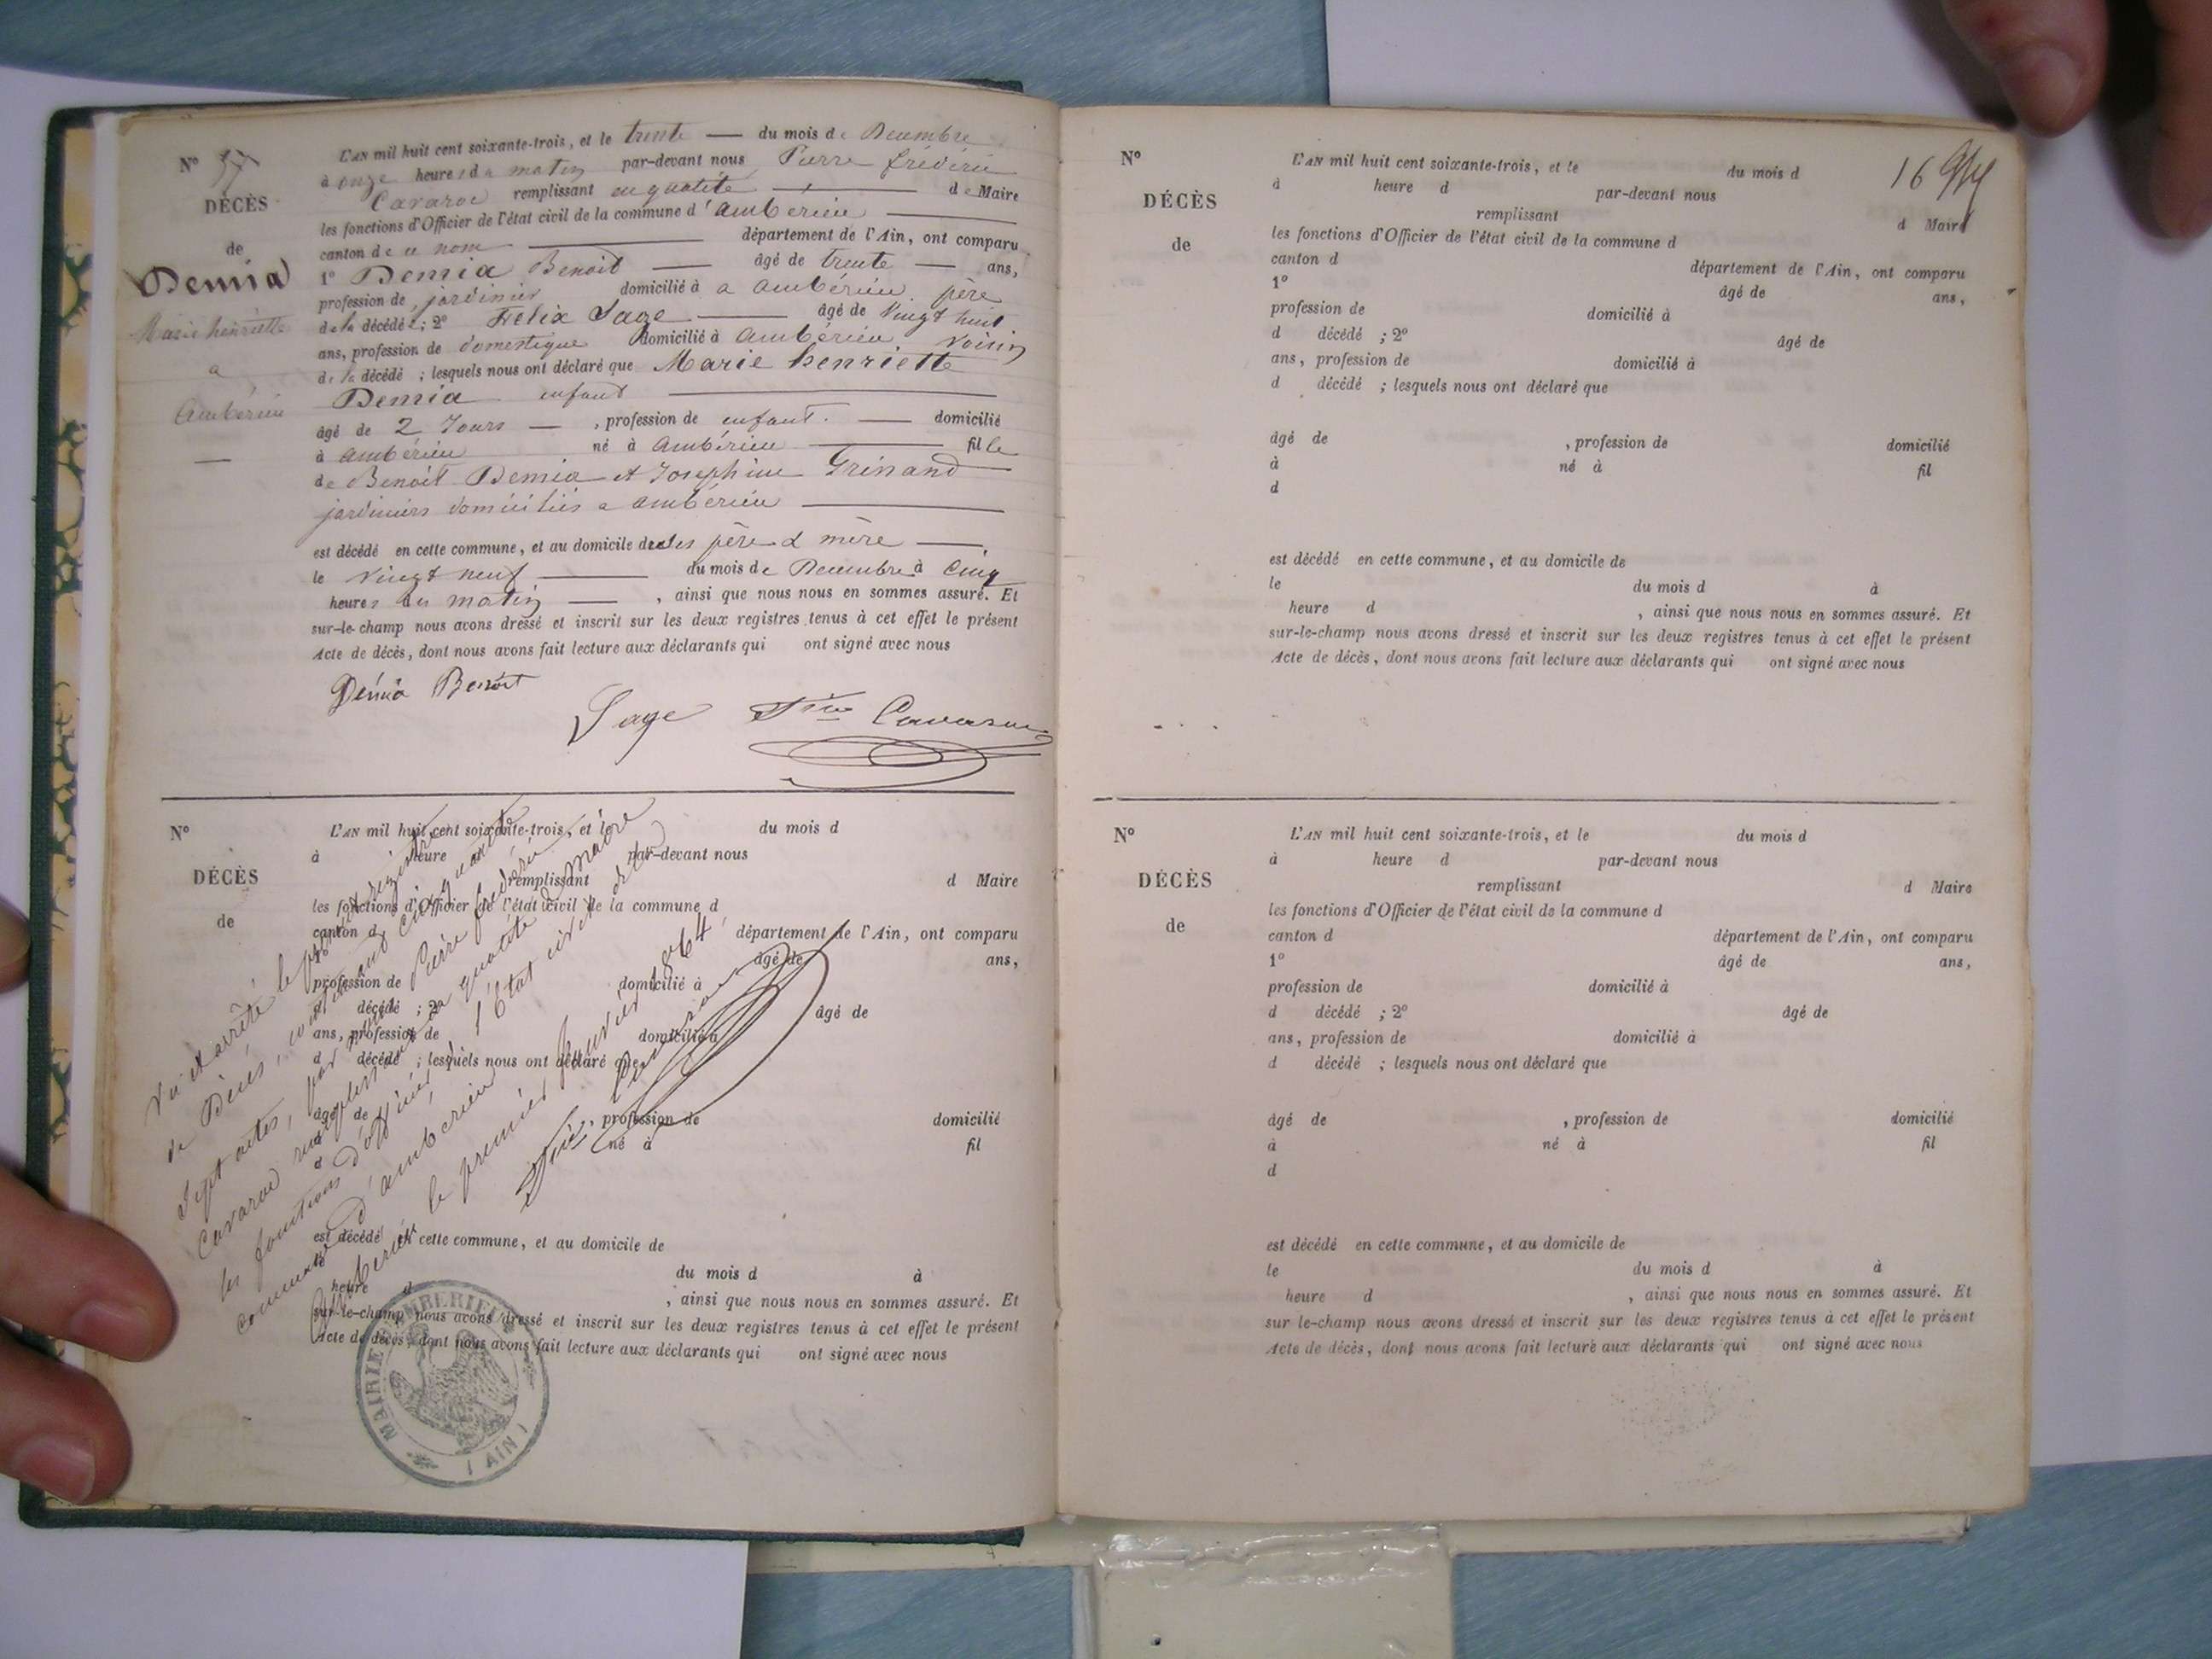 N° 57
DÉCÈS
de
Demia
Marie henriette
a
Ambérieu
L'AN mil huit cent soixante-trois, et le trente — du mois de Decembre
à onze heures du matin par-devant nous Pierre frédéric
Cavaroc remplissant en qualité — de Maire
les fonctions d'Officier de l'état civil de la commune d'ambérieu
canton de ce nom — département de l'Ain, ont comparu
1° Demia Benoit — âgé de trente — ans,
profession de jardinier domicilié à a ambérieu père
de la décédée ; 2° Felix Sage — âgé de Vingt huit
ans, profession de domestique domicilié à ambérieu voisin
de la décédé ; lesquels nous ont déclaré que Marie henriette
Demia enfant
âgé de 2 Jours — , profession de enfant. — domicilié
à ambérieu né à ambérieu — fille
de Benoit Demia et Josephine Grinand
jardiniers domiciliés a ambérieu
est décédé en cette commune, et au domicile de ses père & mère —,
le vingt neuf — du mois de Decembre à Cinq
heures du matin — , ainsi que nous nous en sommes assuré. Et
sur-le-champ nous avons dressé et inscrit sur les deux registres tenus à cet effet le présent
Acte de décès, dont nous avons fait lecture aux déclarants qui ont signé avec nous
Demia Benoit
Sage Cavaroc
N°
DÉCÈS
de
L'AN mil huit cent soixante-trois, et le du mois d
à heure par-devant nous
remplissant d Maire
les fonctions d'Officier de l'état civil de la commune d
canton d département de l'Ain, ont comparu
âgé de ans,
profession de domicilié à
d décédé ; 2° âgé de
ans, profession de domicilié à
d décédé ; lesquels nous ont déclaré que
âgé de , profession de domicilié
à né à fil
d
est décédé en cette commune, et au domicile de
du mois d à
heure d , ainsi que nous nous en sommes assuré. Et
sur-le-champ nous avons dressé et inscrit sur les deux registres tenus à cet effet le présent
Acte de décès, dont nous avons fait lecture aux déclarants qui ont signé avec nous
Vu et arrêté le présent registre
de Décès, contenant cinquante
Sept actes, par nous Pierre frédéric
Cavaroc remplissant en qualité de maire
les fonctions d'officier de l'État civil de la
commune d'amberieu
Amberieu le premier Janvier 1864
MAIRIE D'AMBERIEU
( AIN )
16
N°
DÉCÈS
de
L'AN mil huit cent soixante-trois, et le du mois d
à heure d par-devant nous
remplissant d Maire
les fonctions d'Officier de l'état civil de la commune d
canton d département de l'Ain, ont comparu
1° âgé de ans,
profession de domicilié à
d décédé ; 2° âgé de
ans, profession de domicilié à
d décédé ; lesquels nous ont déclaré que
âgé de , profession de domicilié
à né à fil
d
est décédé en cette commune, et au domicile de
le du mois d à
heure d , ainsi que nous nous en sommes assuré. Et
sur-le-champ nous avons dressé et inscrit sur les deux registres tenus à cet effet le présent
Acte de décès, dont nous avons fait lecture aux déclarants qui ont signé avec nous
N°
DÉCÈS
de
L'AN mil huit cent soixante-trois, et le du mois d
à heure d par-devant nous
remplissant d Maire
les fonctions d'Officier de l'état civil de la commune d
canton d département de l'Ain, ont comparu
1° âgé de ans,
profession de domicilié à
d décédé ; 2° âgé de
ans, profession de domicilié à
d décédé ; lesquels nous ont déclaré que
âgé de , profession de domicilié
à né à fil
d
est décédé en cette commune, et au domicile de
le du mois d à
heure d , ainsi que nous nous en sommes assuré. Et
sur le-champ nous avons dressé et inscrit sur les deux registres tenus à cet effet le présent
Acte de décès, dont nous avons fait lecture aux déclarants qui ont signé avec nous